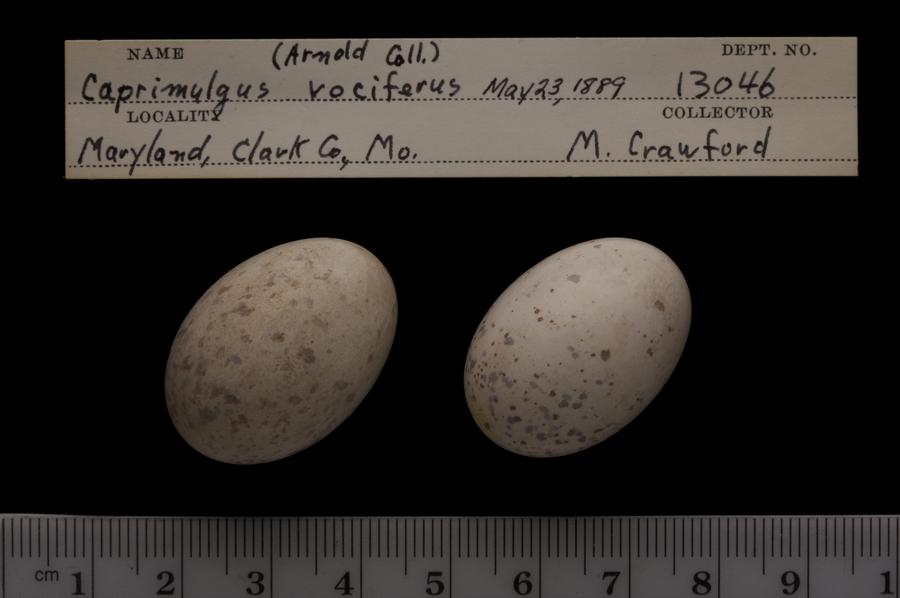 NAME (Arnold Coll.) DEPT. NO.
Caprimulgus vociferus May 23, 1889 13046
LOCALITY COLLECTOR
Maryland, Clark Co, Mo. M. Crawford
cm 1 2 3 4 5 6 7 8 9 1